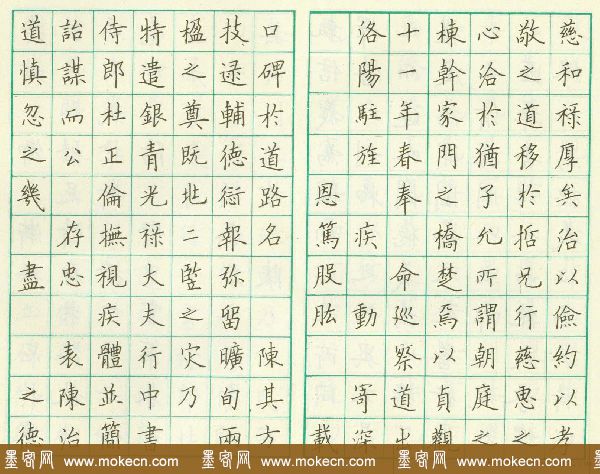 慈和祿厚矣治以儉約以孝
敬之道移於哲兄行慈惠之
心洽於猶子允所謂朝庭之
棟幹家門之橋楚焉以貞觀
十一年春奉 命巡察道出
洛陽駐旌 疾 動 寄深
恩篤股肱 載
口碑於道路名 陳其方
技逯輔德衍報弥留曠旬兩
楹之奠既兆二竪之灾乃
特遣銀青光祿大夫行中書
侍郎杜正倫撫視疾體並簡
詒謀而公 存忠 表陳治
道慎忽之幾 盡 之德
墨密网 www.mokecn.com 墨密网 www.mokecn.com 墨密网 www.mokecn.com